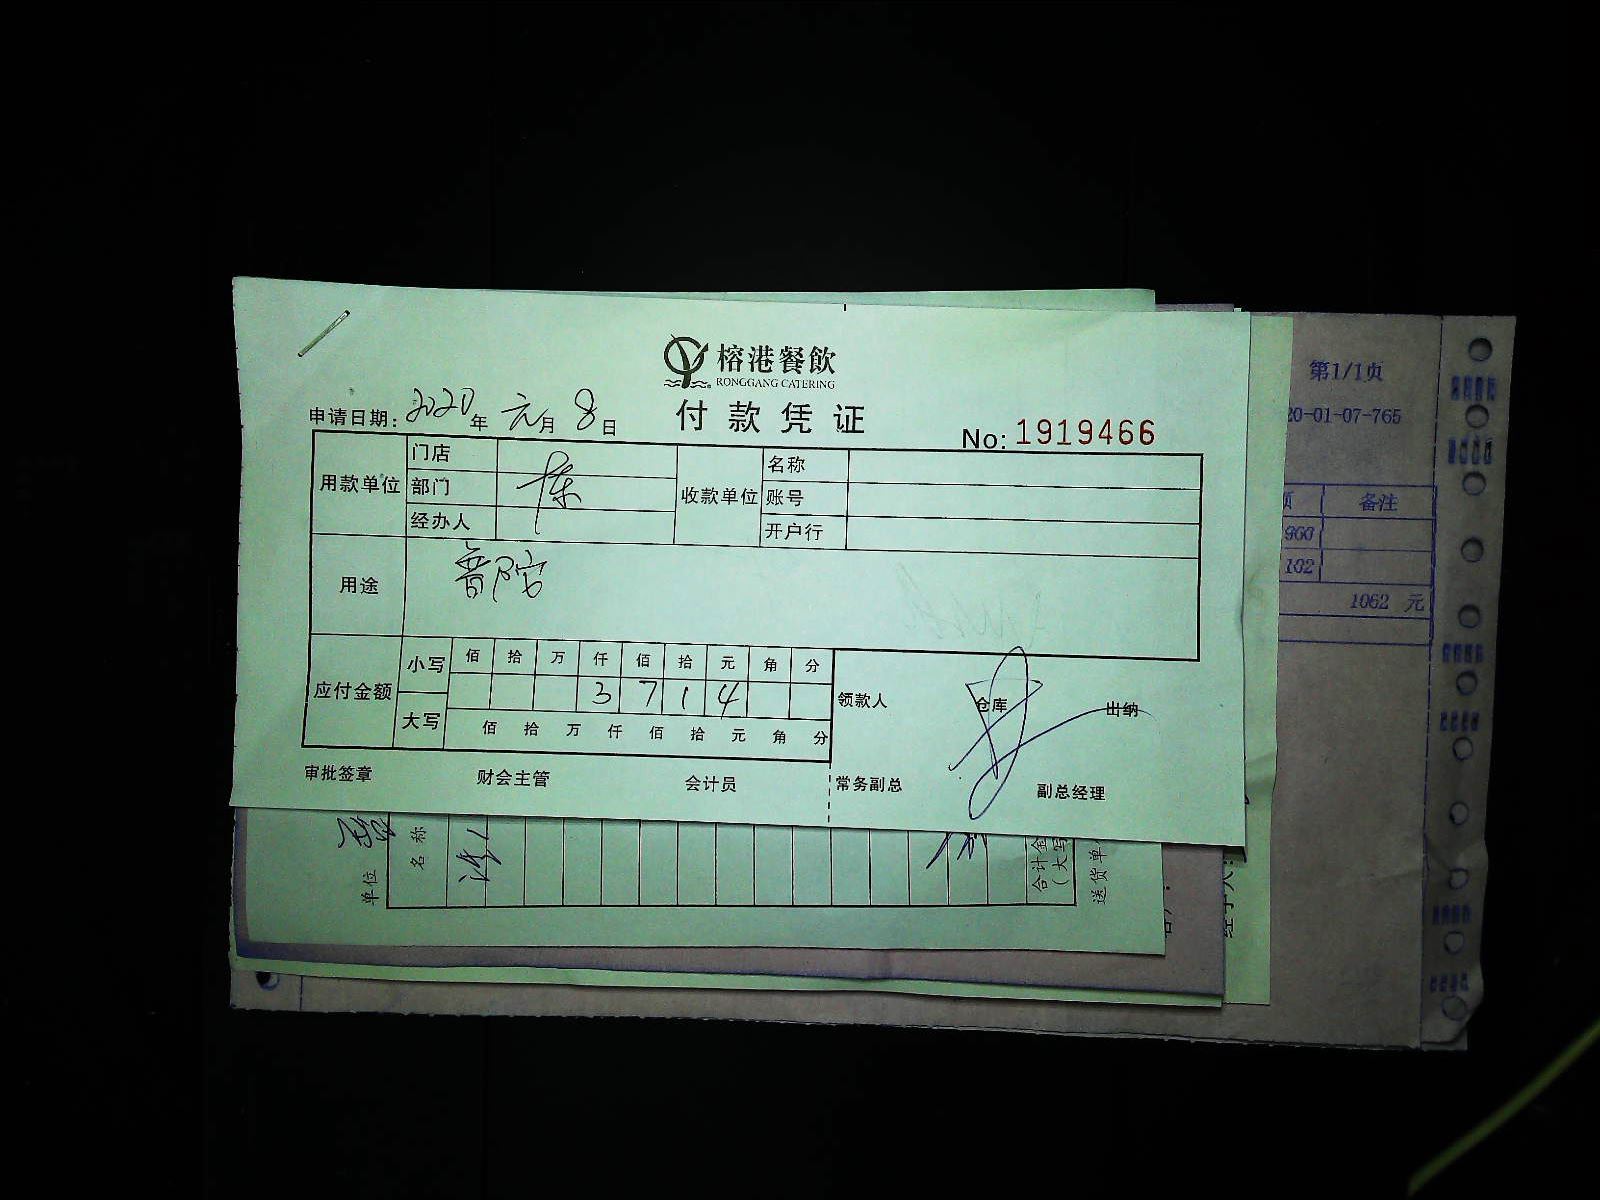 榕港餐飲
RONGGANG CATERING
付款凭证
申请日期: 2020年 元月 8日
No: 1919466
用款单位 门店 部门 经办人 陈
收款单位 名称 账号 开户行
用途 普陀
应付金额 小写 佰 拾 万 仟 佰 拾 元 角 分
3 7 1 4
大写 佰 拾 万 仟 佰 拾 元 角 分
领款人 仓库 出纳
审批签章 财会主管 会计员 常务副总 副总经理
第1/1页
20-01-07-765
备注
960
102
1062 元
单位
名称
合计金
(大写
送货单